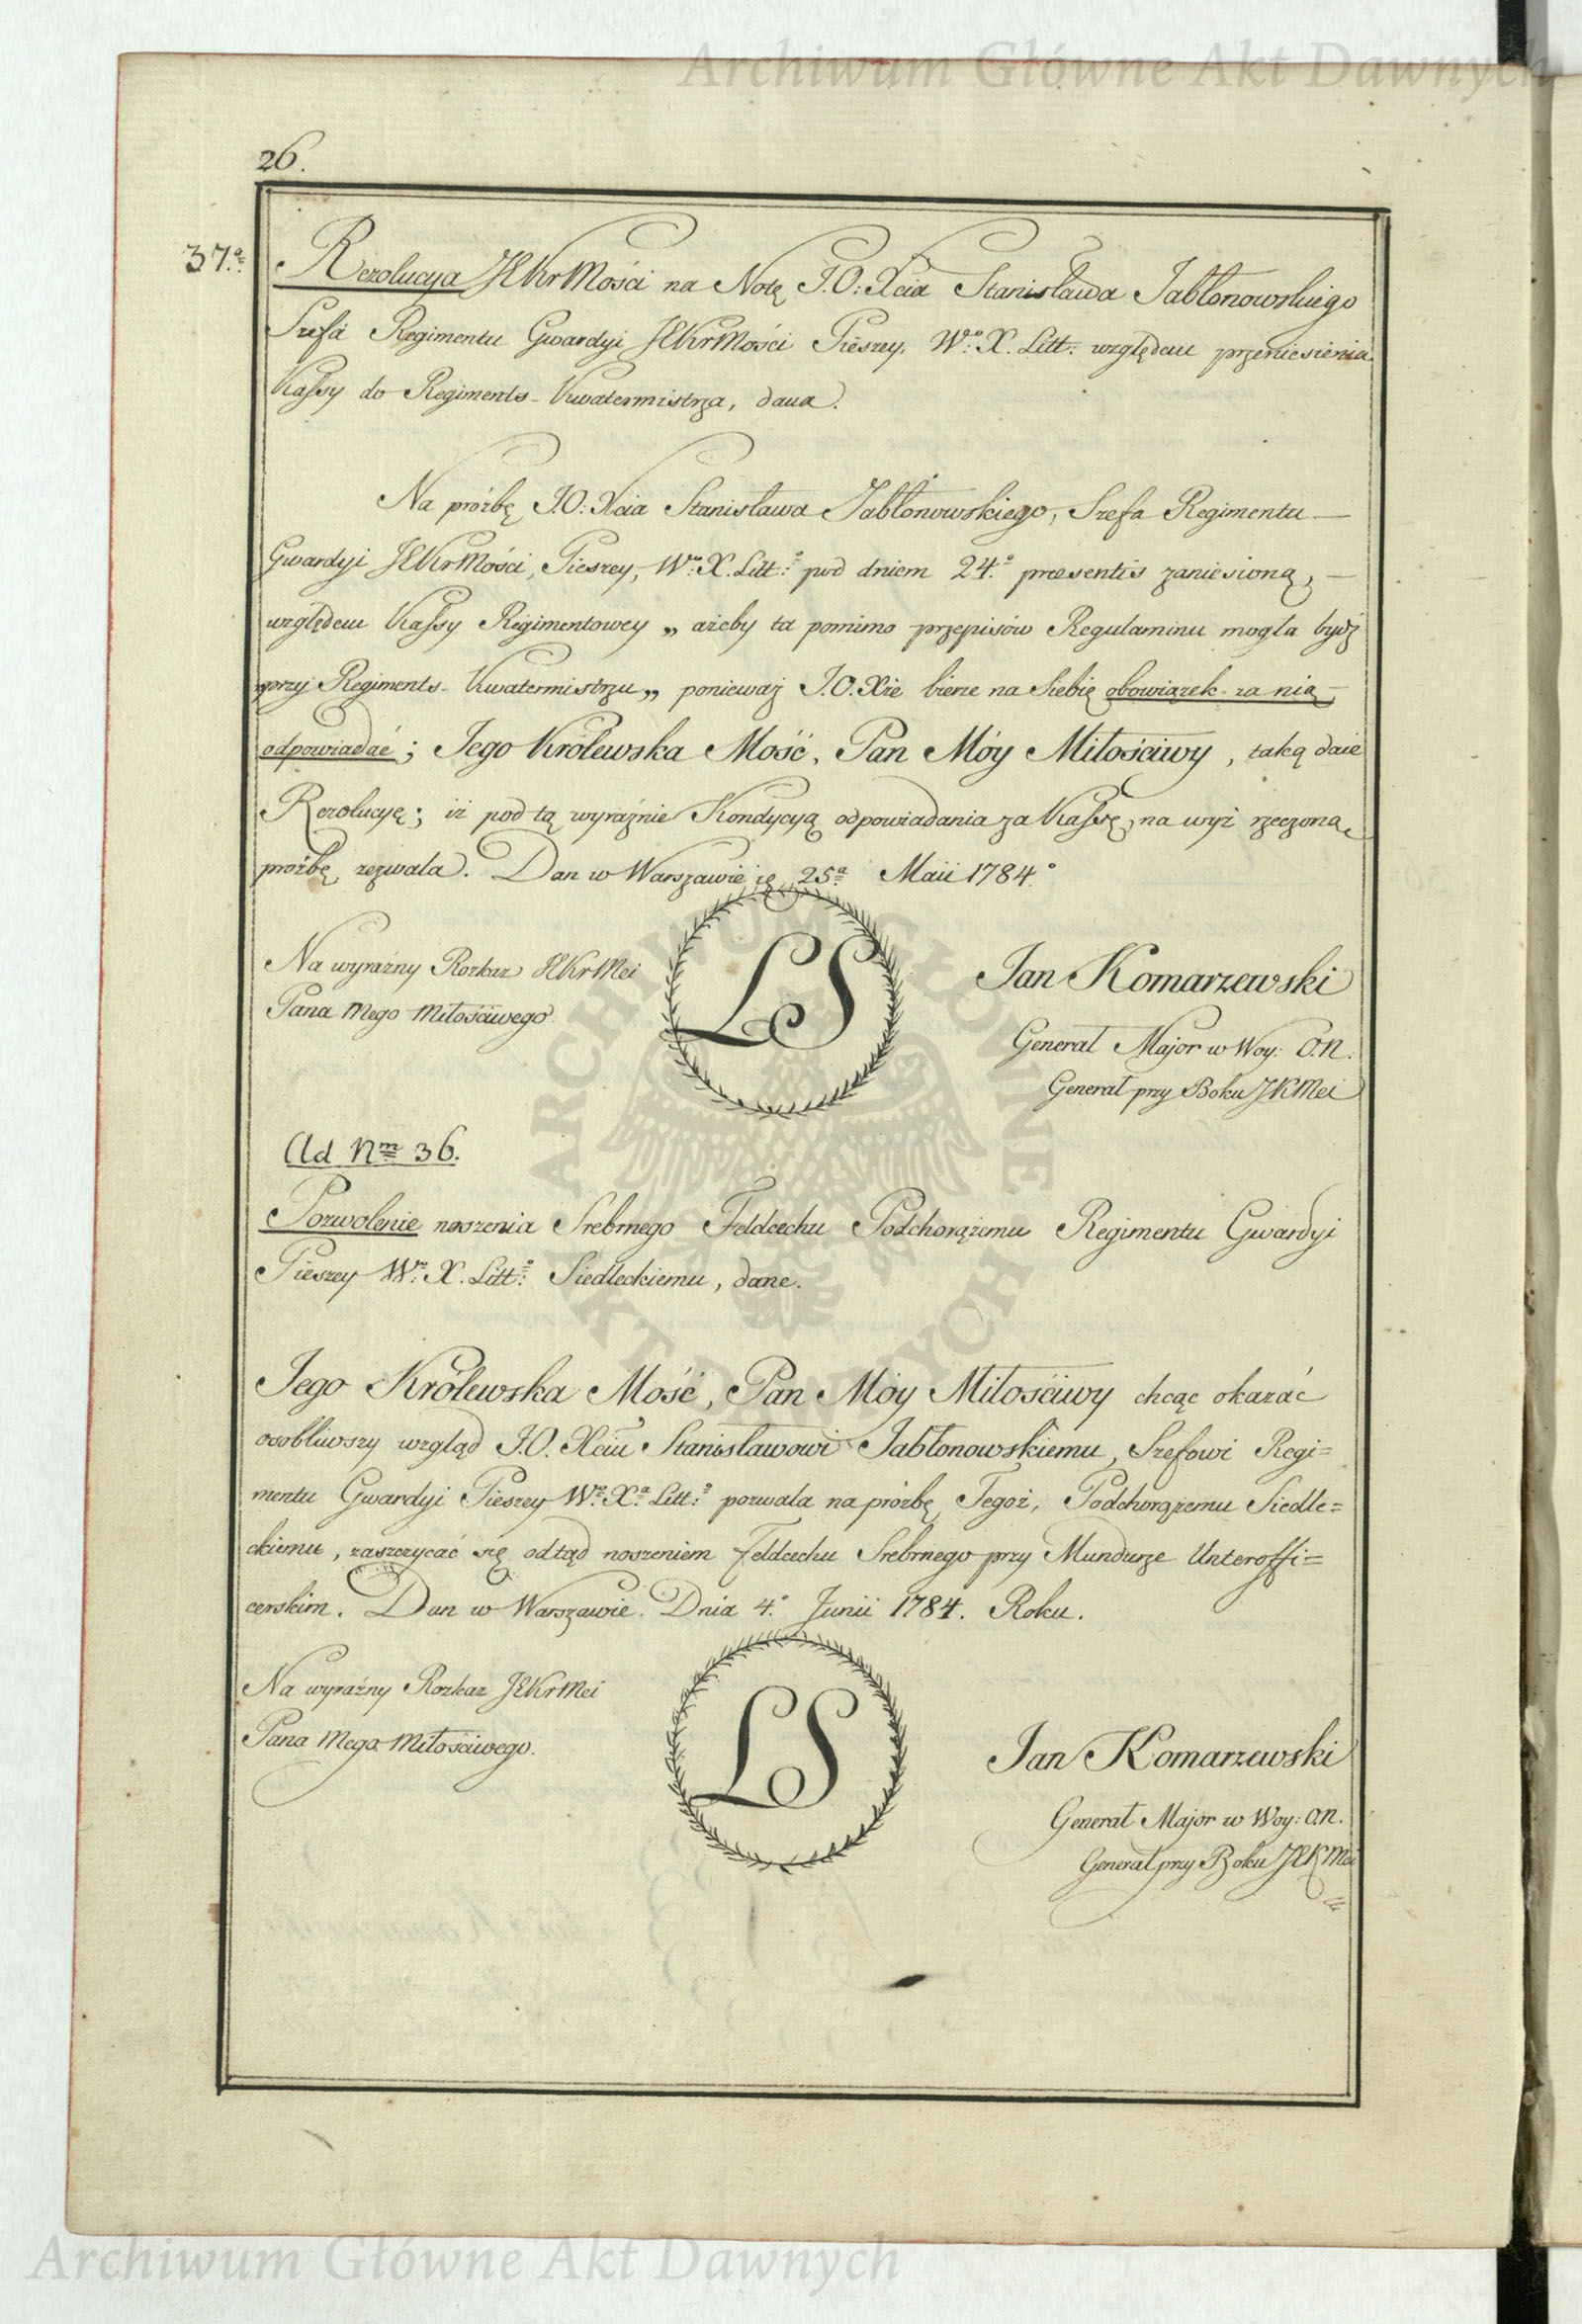 Archiwum Główne Akt Dawnych
26.
37.º
Rezolucya JKKrMości na Notę J.O: Xcia Stanisława Jabłonowskiego
Szefa Regimentu Gwardyi JKKrMości Pieszey, Wº: X. Litt: względem przeniesienia
Kassy do Regiments-Kwatermistrza, dana.
Na proźbę J.O: Xcia Stanisława Jabłonowskiego, Szefa Regimentu —
Gwardyi JKKrMości, Pieszey, Wº: X. Litt:º pod dniem 24.º praesentis zaniesioną, —
względem Kassy Regimentowey „ ażeby ta pomimo przepisów Regulaminu mogła bydź
przy Regiments-Kwatermistrzu „ ponieważ J.O. Xże bierze na Siebie obowiązek za nią —
odpowiadać; Jego Królewska Mość, Pan Móy Miłościwy, taką daie
Rezolucyę; iż pod tą wyraźnie Kondycyą odpowiadania za Kassę, na wyż rzeczoną
proźbę zezwala. Dan w Warszawie 25ª Maii 1784.º
Na wyraźny Rozkaz JKKrMci
Pana Mego Miłościwego.
LS
Jan Komarzewski
Generał Major w Woy: O.N.
Generał przy Boku JKMci
Ad Nm 36.
Pozwolenie noszenia Srebrnego Feldcechu Podchorążemu Regimentu Gwardyi
Pieszey Wº: X. Litt:º Siedleckiemu, dane.
Jego Królewska Mość, Pan Móy Miłościwy chcąc okazać
osobliwszy wzgląd J.O. Xciu Stanisławowi Jabłonowskiemu, Szefowi Regi=
mentu Gwardyi Pieszey Wº: Xª Litt:º pozwala na proźbę Tegoż, Podchorążemu Siedle=
ckiemu, zaszczycać się odtąd noszeniem Feldcechu Srebrnego przy Mundurze Unteroffi=
cerskim. Dan w Warszawie. Dnia 4.º Junii 1784. Roku.
Na wyraźny Rozkaz JKKrMci
Pana Mego Miłościwego.
LS
Jan Komarzewski
Generał Major w Woy: O.N.
Generał przy Boku JKKMci
ARCHIWUM GŁÓWNE AKT DAWNYCH
Archiwum Główne Akt Dawnych